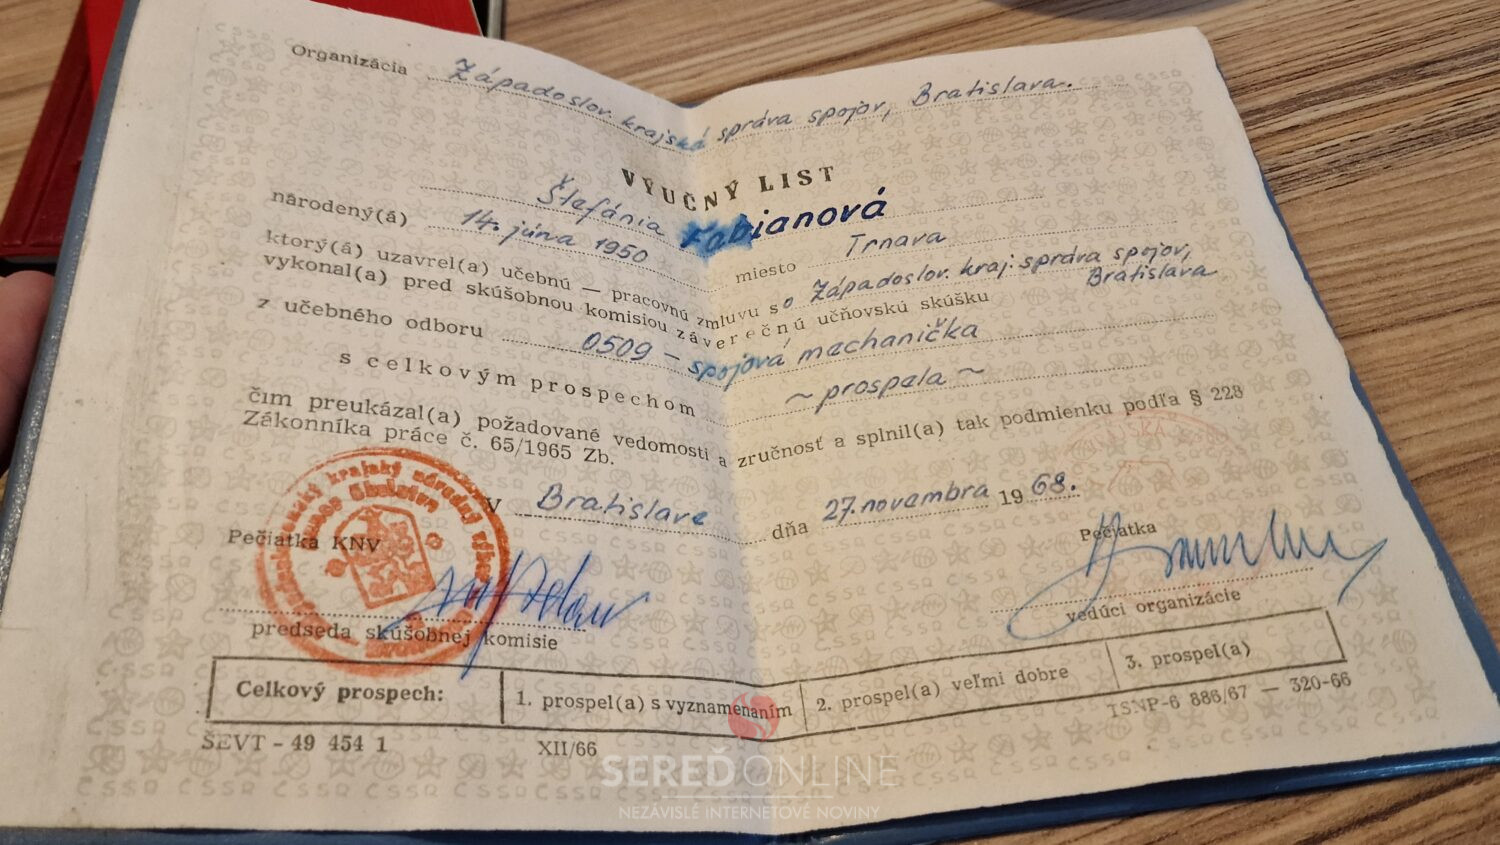 Organizácia Západoslov. krajská správa spojov, Bratislava.
VÝUČNÝ LIST
Štefánia Fabianová
národený(á) 14. júna 1950 miesto Trnava
ktorý(á) uzavrel(a) učebnú — pracovnú zmluvu s o Západoslov. kraj. správa spojov, Bratislava
vykonal(a) pred skúšobnou komisiou záverečnú učňovskú skúšku
z učebného odboru 0509 - spojová mechanička
s celkovým prospechom ~ prospela ~
čím preukázal(a) požadované vedomosti a zručnosť a splnil(a) tak podmienku podľa § 228
Zákonníka práce č. 65/1965 Zb.
V Bratislave dňa 27. novembra 1968.
Pečiatka KNV
Pečiatka
predseda skúšobnej komisie
vedúci organizácie
Celkový prospech: 1. prospel(a) s vyznamenaním 2. prospel(a) veľmi dobre 3. prospel(a)
ŠEVT - 49 454 1 XII/66 TSNP-6 886/67 — 320-66
SEREĎONLINE
NEZÁVISLÉ INTERNETOVÉ NOVINY